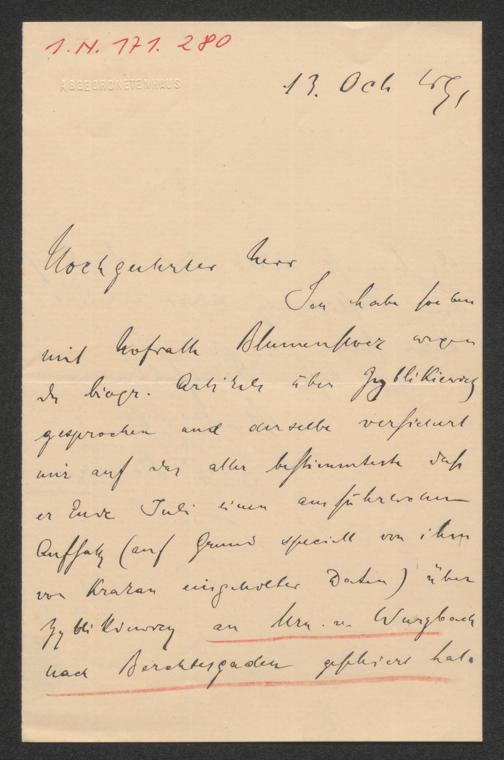 1. N. 171. 280
ABGEORDNETENHAUS
13. Oct
Hochgeehrter Herr
Ich habe soeben
mit Hofrath Blumenstock wegen
des biogr. Artikels über Zyblikiewicz
gesprochen und derselbe versichert
mir auf das aller bestimmteste daß
er Ende Juli einen
Aufsatz (auf Grund speciell von ihm
von Krakau eingeholter Daten) über
Zyblikiewicz an Hrn. v. Wurzbach
nach Berchtesgaden geschickt habe